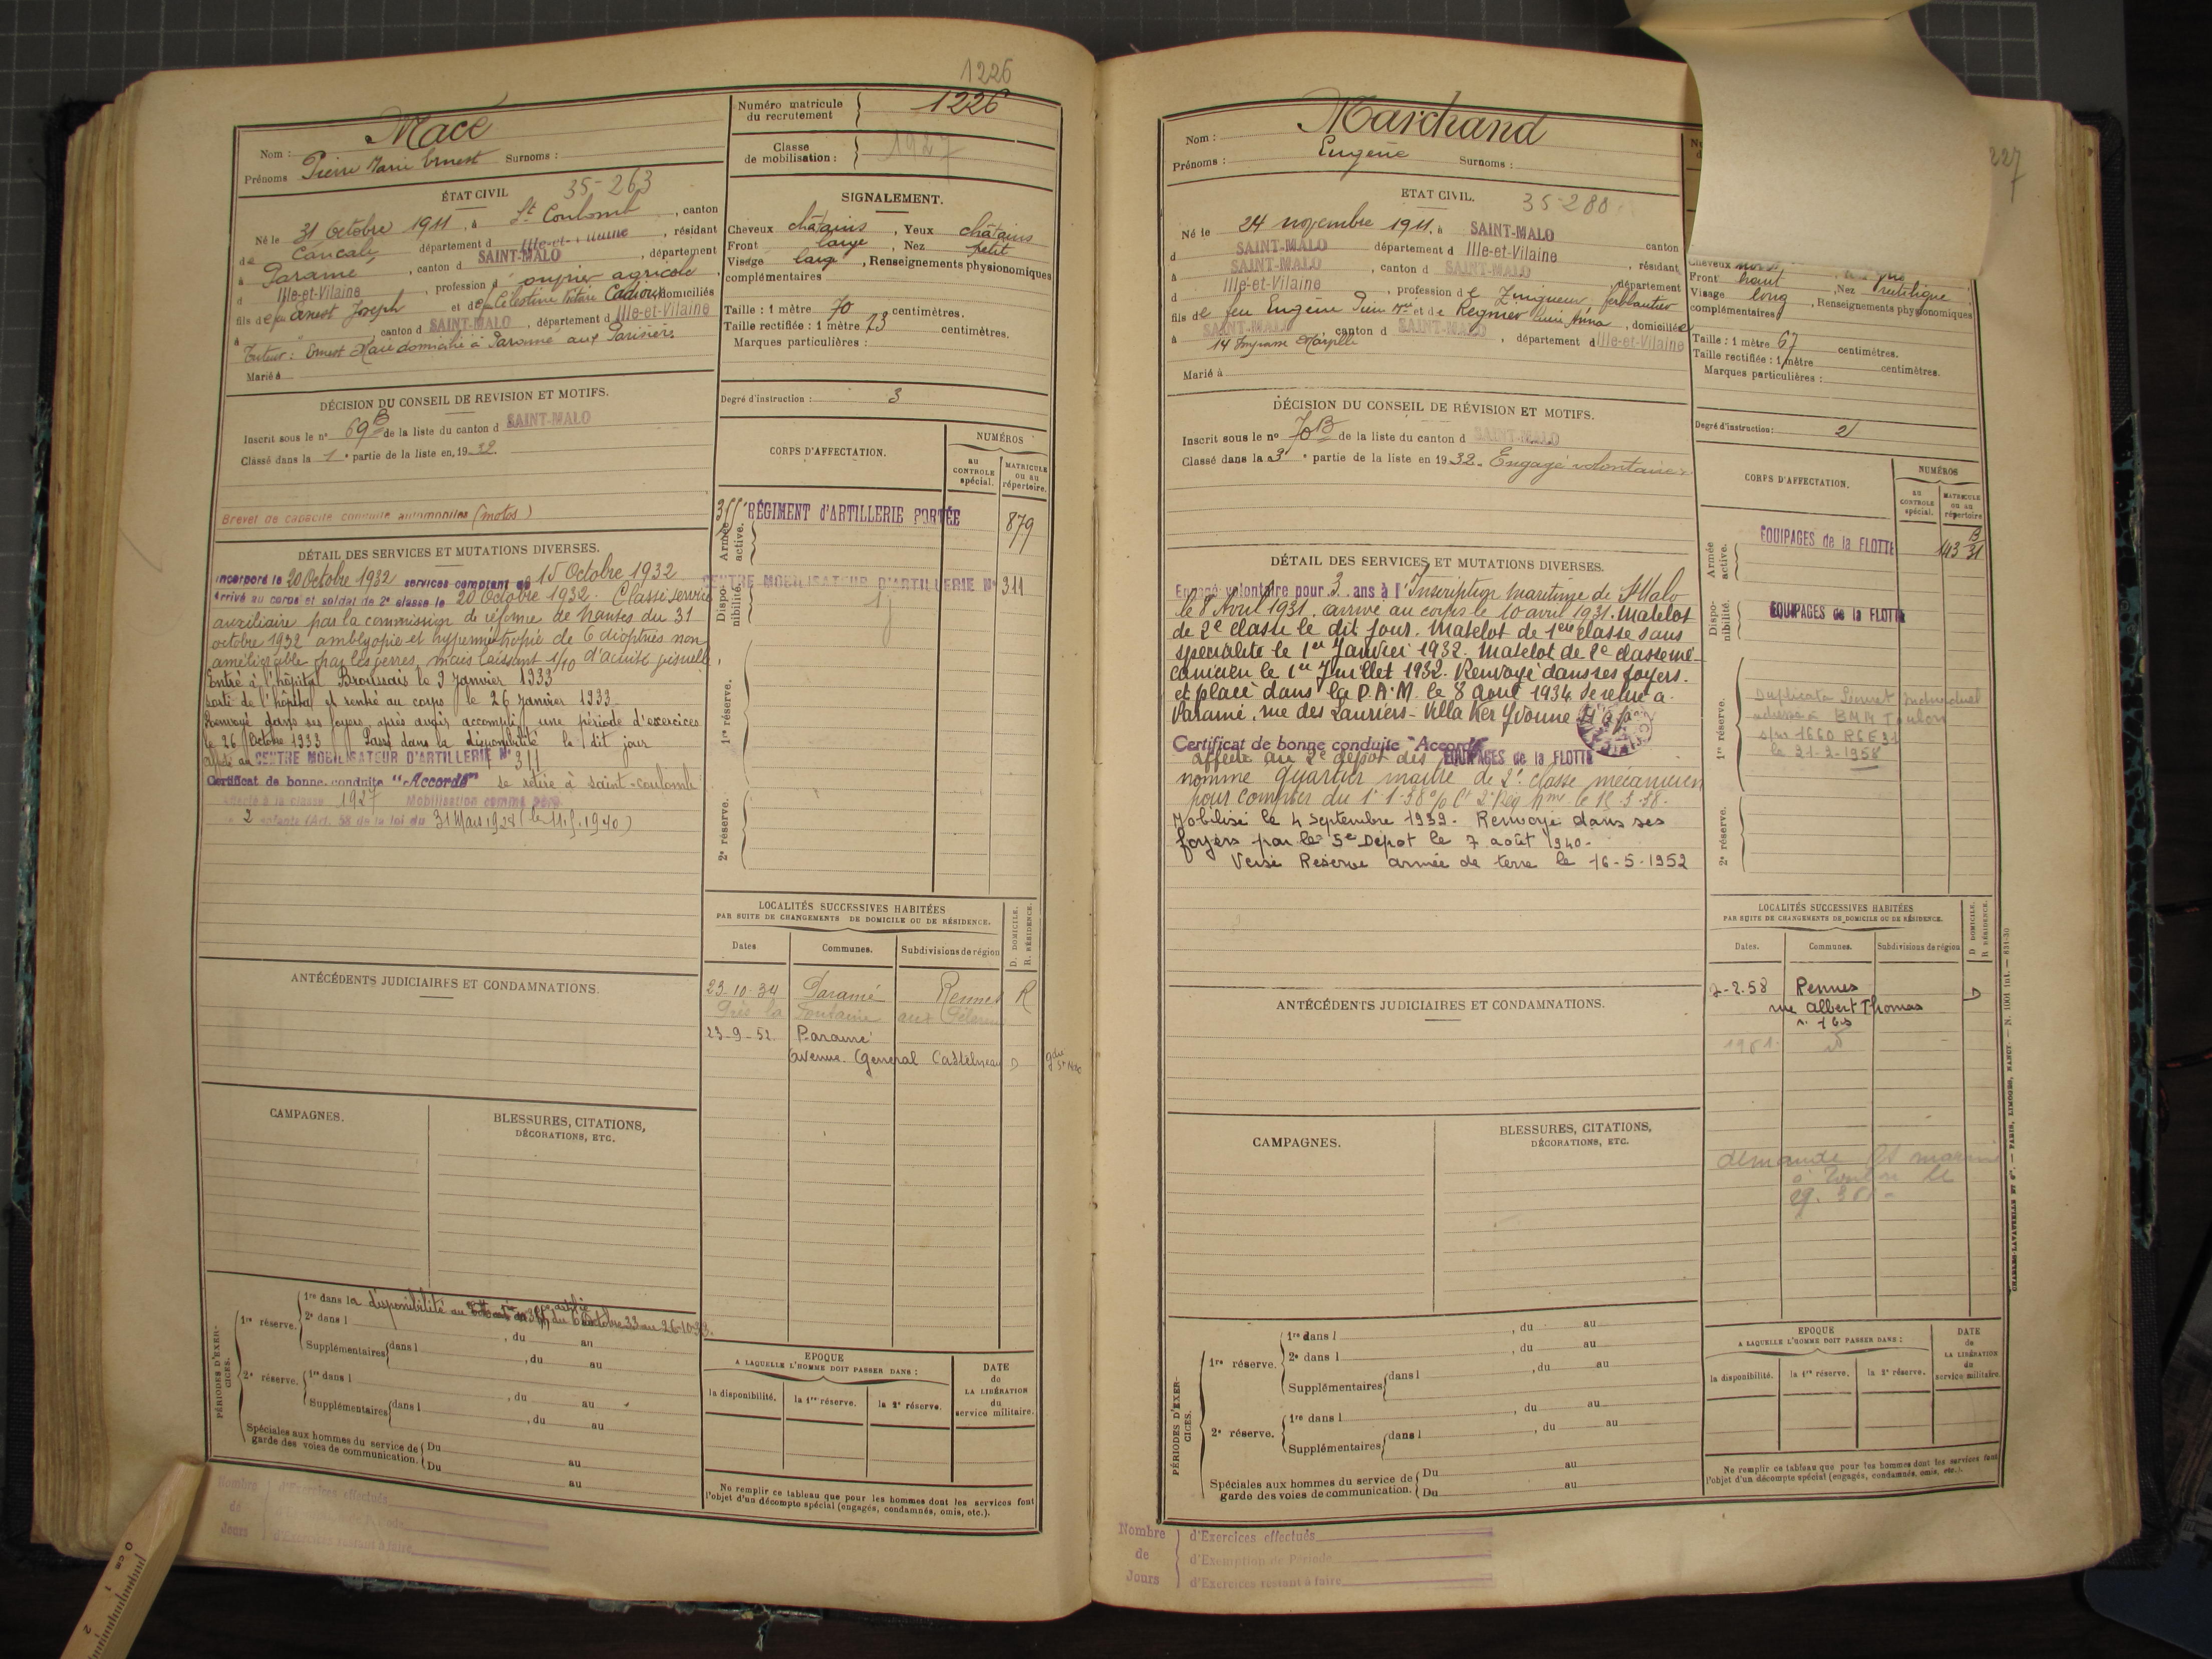 1226
Nom : Macé
Prénoms Pierre Marie Ernest Surnoms :
Numéro matricule du recrutement 1226
Classe de mobilisation : 1927
ÉTAT CIVIL 35-263
Né le 31 Octobre 1911, à St Coulomb, canton
de Cancale département d Ille-et-Vilaine, résidant
à Paramé, canton d SAINT-MALO, département
d Ille-et-Vilaine, profession d' ouvrier agricole,
fils de feu Ernest Joseph et de feu Célestine Cadiou domiciliés
à canton d SAINT-MALO, département d Ille-et-Vilaine
Tuteur : Ernest Macé domicilié à Paramé aux
Marié à
SIGNALEMENT.
Cheveux châtains, Yeux châtains
Front large, Nez petit
Visage large, Renseignements physionomiques
complémentaires
Taille : 1 mètre 70 centimètres.
Taille rectifiée : 1 mètre 73 centimètres.
Marques particulières :
Degré d'instruction : 3
DÉCISION DU CONSEIL DE REVISION ET MOTIFS.
Inscrit sous le n° 69 B de la liste du canton d SAINT-MALO
Classé dans la 1e partie de la liste en 1932.
Brevet de capacité conduite automobiles (motos)
DÉTAIL DES SERVICES ET MUTATIONS DIVERSES.
Incorporé le 20 Octobre 1932 services comptant du 15 Octobre 1932
Arrivé au corps et soldat de 2e classe le 20 Octobre 1932. Classé service
auxiliaire par la commission de réforme de Nantes du 31
octobre 1932 amblyopie et hypermétropie de 6 dioptries non
améliorable par les verres, mais laissant 1/10 d'acuité visuelle.
Entré à l'hôpital Broussais le 9 Janvier 1933
sorti de l'hôpital et rentré au corps le 26 Janvier 1933
Renvoyé dans ses foyers après avoir accompli une période d'exercices
le 26 Octobre 1933 Passé dans la disponibilité le dit jour
affecté au CENTRE MOBILISATEUR D'ARTILLERIE N° 311
Certificat de bonne conduite "Accordé" se retire à Saint-Coulomb
Affecté à la classe 1927 Mobilisation comme père
de 2 enfants (Art. 58 de la loi du 31 Mars 1928 (le 11.5.1940)
CORPS D'AFFECTATION.
NUMÉROS
au CONTROLE spécial.
MATRICULE ou au répertoire.
Armée active.
355e RÉGIMENT d'ARTILLERIE PORTÉE 879
Disponibilité.
CENTRE MOBILISATEUR D'ARTILLERIE N° 311
1re réserve.
2e réserve.
LOCALITÉS SUCCESSIVES HABITÉES
PAR SUITE DE CHANGEMENTS DE DOMICILE OU DE RÉSIDENCE.
D. DOMICILE.
R. RÉSIDENCE.
Dates Communes. Subdivisions de région
23-10-34 Paramé Rennes R
Près la Fontaine aux
23-9-52. Paramé
avenue Général Castelnau D
ANTÉCÉDENTS JUDICIAIRES ET CONDAMNATIONS.
CAMPAGNES.
BLESSURES, CITATIONS,
DÉCORATIONS, ETC.
PÉRIODES D'EXERCICES.
1re réserve.
1re dans la disponibilité au du 6 Octobre 33 au 26-10-33.
2e dans l , du au
Supplémentaires dans l , du au
2e réserve.
1re dans l , du au
Supplémentaires dans l , du au
Spéciales aux hommes du service de
garde des voies de communication.
Du au
Du au
EPOQUE
A LAQUELLE L'HOMME DOIT PASSER DANS :
la disponibilité. la 1re réserve. la 2e réserve.
DATE de LA LIBÉRATION du service militaire.
Ne remplir ce tableau que pour les hommes dont les services font
l'objet d'un décompte spécial (engagés, condamnés, omis, etc.).
Nombre de Jours
d'Exercices effectués
d'Exercices restant à faire
227
Nom : Marchand
Prénoms : Eugène Surnoms :
ETAT CIVIL. 35-280
Né le 24 novembre 1911, à SAINT-MALO
d SAINT-MALO département d Ille-et-Vilaine canton
à SAINT-MALO, canton d SAINT-MALO, résidant
d Ille-et-Vilaine, profession de Zingueur ferblantier département
fils de feu Eugène Pierre Mie et de Régnier Anna, domiciliée
à SAINT-MALO, canton d SAINT-MALO, département d Ille-et-Vilaine
14 Impasse
Marié à
Cheveux noirs
Front haut, Nez rectiligne
Visage long, Renseignements physionomiques
complémentaires
Taille : 1 mètre 67 centimètres.
Taille rectifiée : 1 mètre centimètres.
Marques particulières :
Degré d'instruction : 2
DÉCISION DU CONSEIL DE RÉVISION ET MOTIFS.
Inscrit sous le n° 70 B de la liste du canton d SAINT-MALO
Classé dans la 3e partie de la liste en 1932. Engagé volontaire.
DÉTAIL DES SERVICES ET MUTATIONS DIVERSES.
Engagé volontaire pour 3 ans à l'Inscription maritime de St Malo
le 8 Avril 1931, arrivé au corps le 10 avril 1931. Matelot
de 2e classe le dit jour. Matelot de 1ere classe sans
spécialité le 1er Janvier 1932. Matelot de 2e classe mé-
canicien le 1er Juillet 1932. Renvoyé dans ses foyers.
et placé dans la D.A.M. le 8 août 1934. Se retire à
Paramé, rue des Lauriers - Villa Ker Yvonne
Certificat de bonne conduite "Accordé"
affecté au 2e dépôt des EQUIPAGES de la FLOTTE
nommé quartier maître de 2e classe mécanicien
pour compter du 1-1-38
Mobilisé le 4 Septembre 1939. Renvoyé dans ses
foyers par le 5e Dépôt le 7 août 1940.
Versé Réserve armée de terre le 16-5-1952
CORPS D'AFFECTATION.
NUMÉROS
au CONTROLE spécial.
MATRICULE ou au répertoire
Armée active.
EQUIPAGES de la FLOTTE 143 B/31
Disponibilité.
EQUIPAGES de la FLOTTE
1re réserve.
Duplicata Livret Individuel
adressé à BMM Toulon
s/nr 1660 RGE31
le 21-2-1958
2e réserve.
LOCALITÉS SUCCESSIVES HABITÉES
PAR SUITE DE CHANGEMENTS DE DOMICILE OU DE RÉSIDENCE.
D DOMICILE.
R RÉSIDENCE.
Dates. Communes. Subdivisions de région
7-2.58 Rennes D
rue Albert Thomas
1961
demande
à Toulon le
ANTÉCÉDENTS JUDICIAIRES ET CONDAMNATIONS.
CAMPAGNES.
BLESSURES, CITATIONS,
DÉCORATIONS, ETC.
PÉRIODES D'EXERCICES.
1re réserve.
1re dans l , du au
2e dans l , du au
Supplémentaires dans l , du au
2e réserve.
1re dans l , du au
Supplémentaires dans l , du au
Spéciales aux hommes du service de
garde des voies de communication.
Du au
Du au
EPOQUE
A LAQUELLE L'HOMME DOIT PASSER DANS :
la disponibilité. la 1re réserve. la 2e réserve.
DATE de LA LIBÉRATION du service militaire.
Ne remplir ce tableau que pour les hommes dont les services font
l'objet d'un décompte spécial (engagés, condamnés, omis, etc.).
CHARLES-LAVAUZELLE ET Cie. — PARIS, LIMOGES, NANCY — N. 1001 int. — 631-30
Nombre de Jours
d'Exercices effectués
d'Exemption de Période
d'Exercices restant à faire
0 cm 1 2